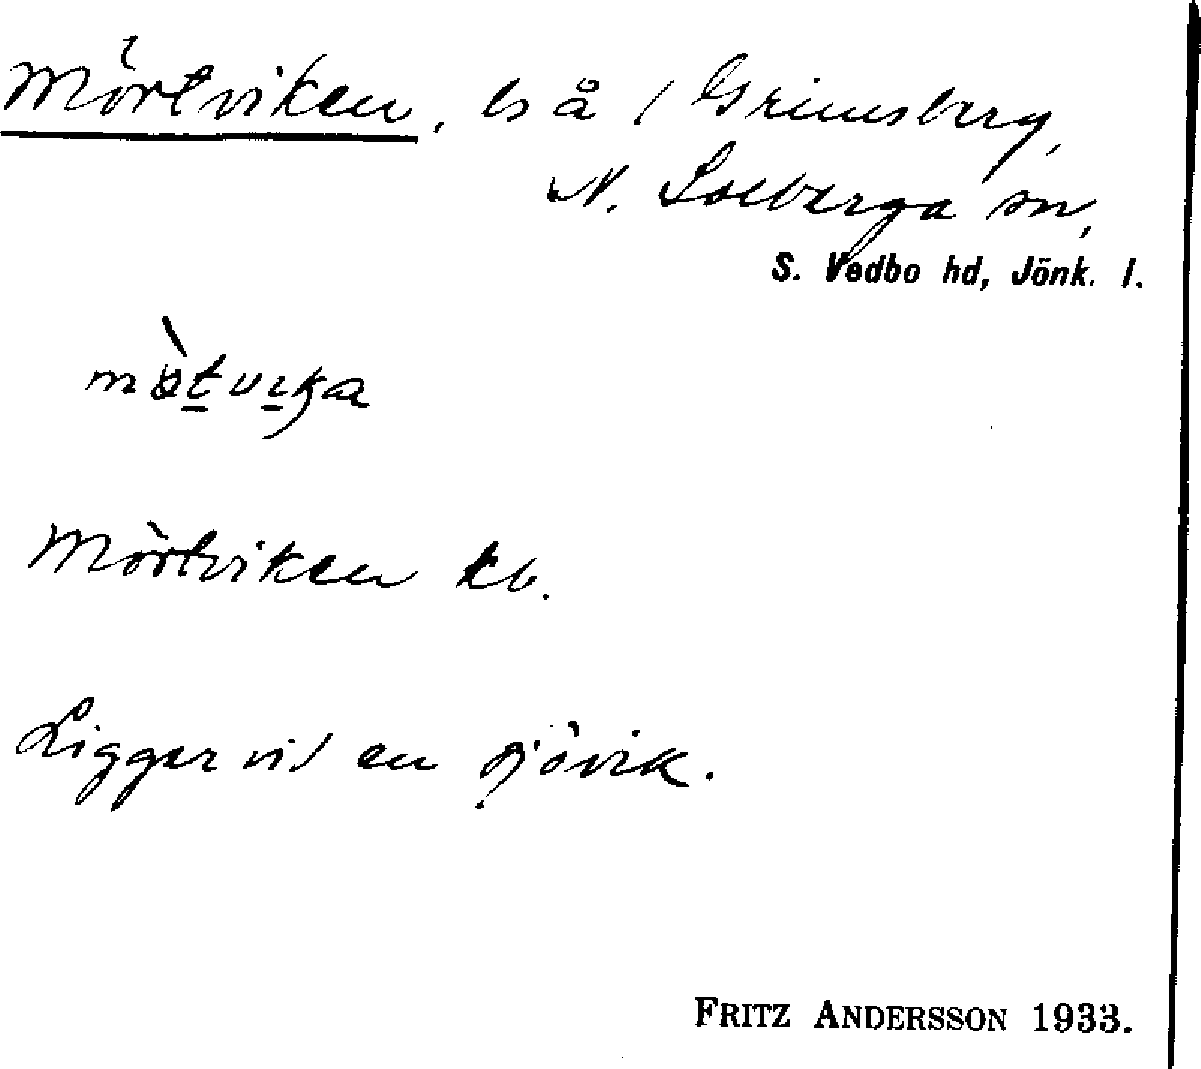 Mörtviken, ls å / Grimsberg,
N. Solberga sn,
S. Vedbo hd, Jönk. l.
Mörtviken kb.
Ligger vid en sjövik.
FRITZ ANDERSSON 1933.